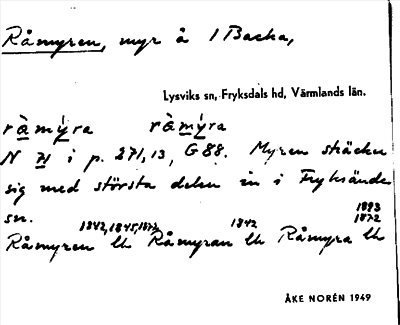 Råmyren, myr å 1 Backa,
Lysviks sn, Fryksdals hd, Värmlands län.
ràmýra ràmýra
N 71 i p. 271,13, G 88. Myren sträcker
sig med största delen in i Fryksände
sn.
1842,1845,1872 1842 1893 1872
Råmyren lh Råmyran lh Råmyra lh
ÅKE NORÉN 1949